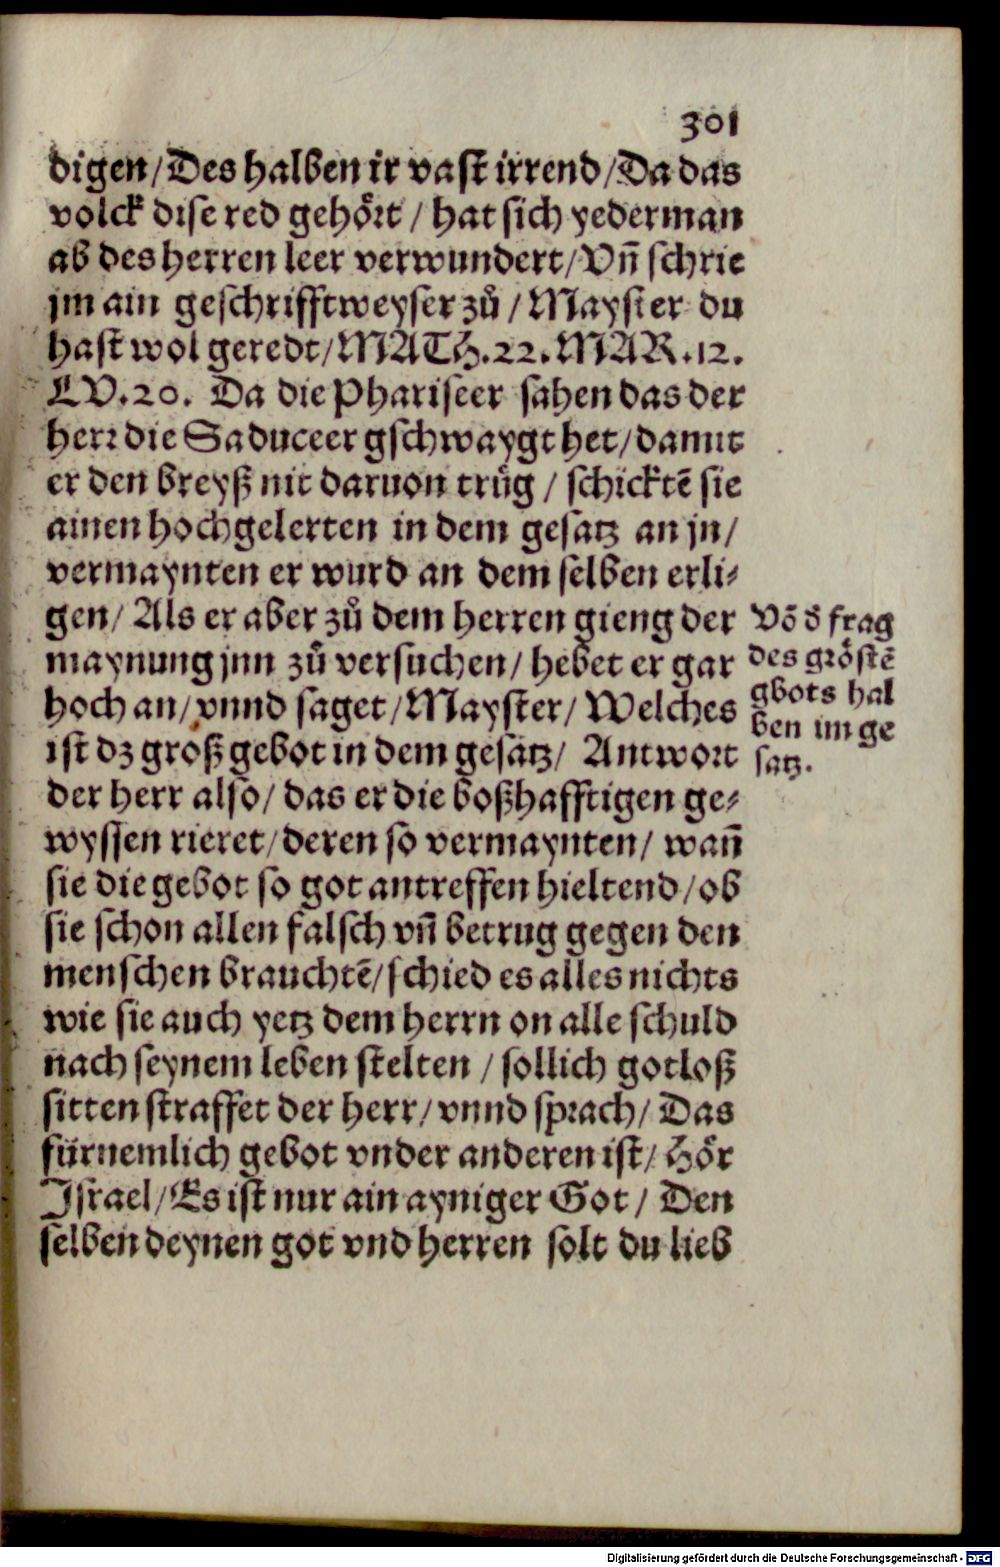 301
digen/Des halben ir vast irrend/Da das
volck dise red gehoͤrt / hat sich yederman
ab des herren leer verwundert/Vñ schrie
jm ain geschrifftweyser zuͦ / Mayster du
hast wol geredt/MATH.22.MAR.12.
LV.20. Da die Phariseer sahen das der
herr die Saduceer gschwaygt het/damit
er den breyß nit daruon truͤg / schicktē sie
ainen hochgelerten in dem gesatz an jn/
vermaynten er wurd an dem selben erli-
gen/ Als er aber zuͦ dem herren gieng der
maynung jnn zuͦ versuchen/ hebet er gar
hoch an/vnnd saget/Mayster/ Welches
ist dz groß gebot in dem gesatz/ Antwort
der herr also/ das er die boßhafftigen ge-
wyssen rieret/deren so vermaynten/ wañ
sie die gebot so got antreffen hieltend/ob
sie schon allen falsch vñ betrug gegen den
menschen brauchtē/schied es alles nichts
wie sie auch yetz dem herrn on alle schuld
nach seynem leben stelten / sollich gotloß
sitten straffet der herr/ vnnd sprach/ Das
fürnemlich gebot vnder anderen ist/ Hoͤr
Israel/Es ist nur ain ayniger Got / Den
selben deynen got vnd herren solt du lieb
Võ ð frag
des groͤstē
gbots hal
ben im ge
satz.
Digitalisierung gefördert durch die Deutsche Forschungsgemeinschaft - DFG